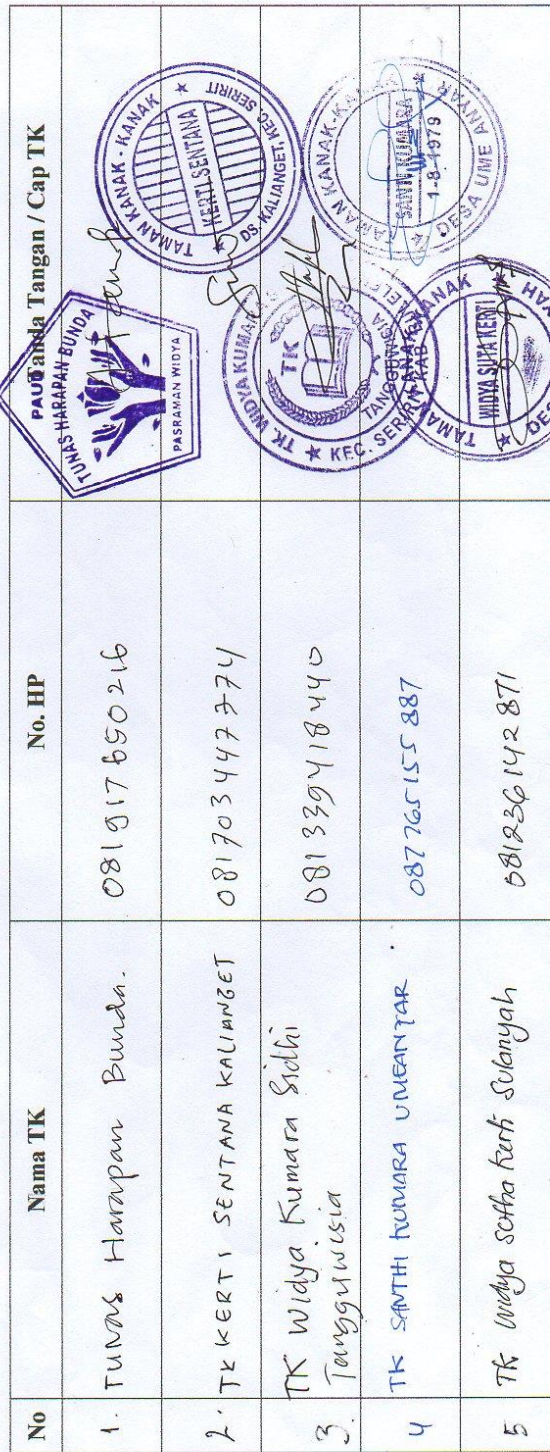 No Nama TK No. HP Tanda Tangan / Cap TK
1. TUNAS Harapan Bunda. 081917650216
PAUD
TUNAS HARAPAN BUNDA
PASRAMAN WIDYA
2. TK KERTI SENTANA KALIANGET 081703447774
TAMAN KANAK - KANAK
KERTI SENTANA
DS. KALIANGET, KEC. SERIRIT
3. TK Widya Kumara Sidhi 081339418440
Tangguwisia
TK. WIDYA KUMARA
TK
TANGGUWISIA
KEC. SERIRIT
4 TK SANTHI KUMARA UMEANYAR. 087765155887
TAMAN KANAK-KANAK
SANTI KUMARA
1-8-1979
DESA UME ANYAR
5 TK Widya Sutha Kerti Sulanyah 081236142871
TAMAN KANAK
WIDYA SUTA KERTI
DESA